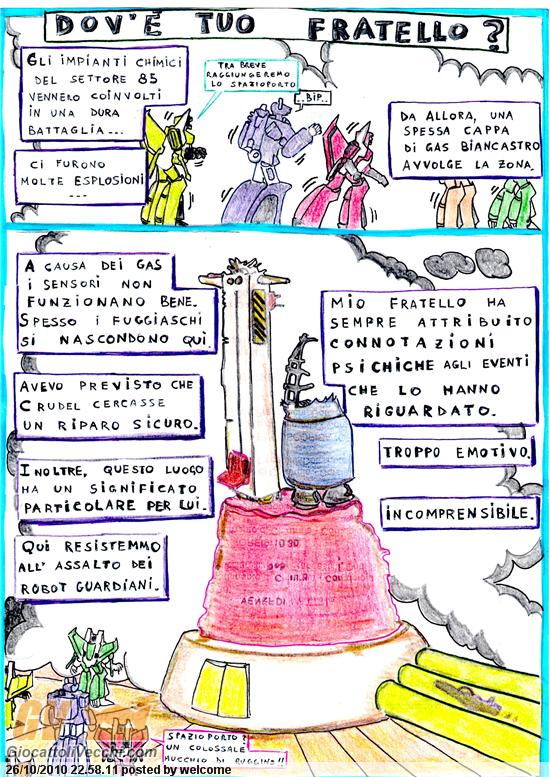 DOV'É TUO FRATELLO?
GLI IMPIANTI CHIMICI
DEL SETTORE 85
VENNERO COINVOLTI
IN UNA DURA
BATTAGLIA...
TRA BREVE
RAGGIUNGEREMO
LO SPAZIOPORTO
..BIP..
CI FURONO
MOLTE ESPLOSIONI
...
DA ALLORA, UNA
SPESSA CAPPA
DI GAS BIANCASTRO
AVVOLGE LA ZONA.
A CAUSA DEI GAS
I SENSORI NON
FUNZIONANO BENE.
SPESSO I FUGGIASCHI
SI NASCONDONO QUI.
AVEVO PREVISTO CHE
CRUDEL CERCASSE
UN RIPARO SICURO.
INOLTRE, QUESTO LUOGO
HA UN SIGNIFICATO
PARTICOLARE PER LUI.
QUI RESISTEMMO
ALL'ASSALTO DEI
ROBOT GUARDIANI.
MIO FRATELLO HA
SEMPRE ATTRIBUITO
CONNOTAZIONI
PSICHICHE AGLI EVENTI
CHE LO HANNO
RIGUARDATO.
TROPPO EMOTIVO.
INCOMPRENSIBILE.
SPAZIOPORTO?
UN COLOSSALE
MUCCHIO DI RUGGINE!!
GiocattoliVecchi.com
26/10/2010 22.58.11 posted by welcome